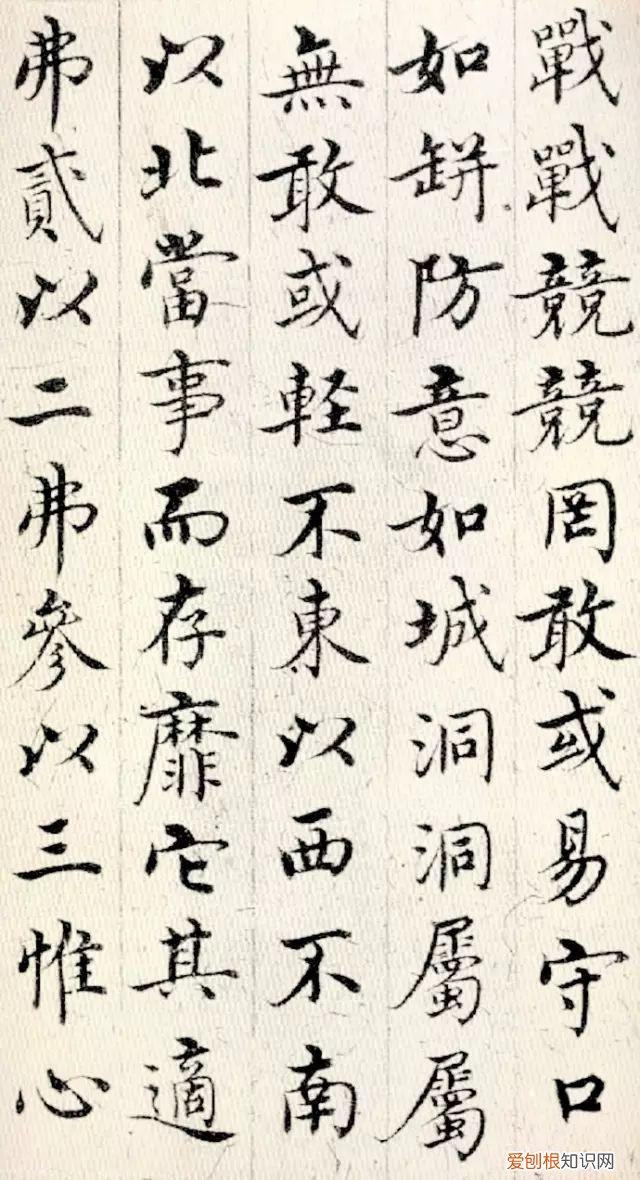 戰戰競競罔敢或易守口
如缾防意如城洞洞屬屬
無敢或軽不東以西不南
以北當事而存靡它其適
弗貳以二弗參以三惟心
爱刨根知识网